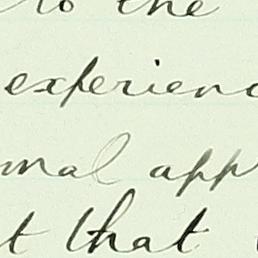 to the
experienc
mal app
t that